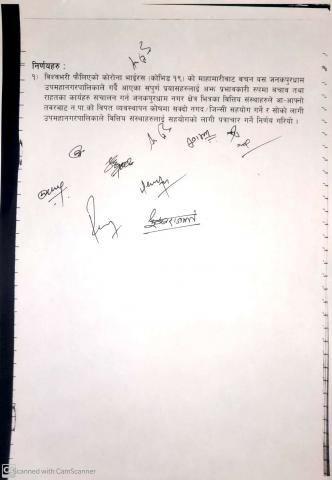 निर्णयहरु :
१) विश्वभरी फैलिएको कोरोना भाईरस (कोभिड १९) को माहामारीबाट बचन यस जनकपुरधाम
उपमहानगरपालिकाले गर्दै आएका सपूर्ण प्रयासहरुलाई अझ प्रभावकारी रुपमा बचाव तथा
राहतका कार्यहरु संचालन गर्न जनकपुरधाम नगर क्षेत्र भित्रका वित्तिय संस्थाहरुले आ-आफ्नो
तर्फबाट न.पा.को विपत व्यवस्थापन कोषमा सक्दो नगद / जिन्सी सहयोग गर्ने र सोको लागी
उपमहानगरपालिकाले वित्तिय संस्थाहरुलाई सहयोगको लागी पत्राचार गर्ने निर्णय गरियो ।
CS Scanned with CamScanner